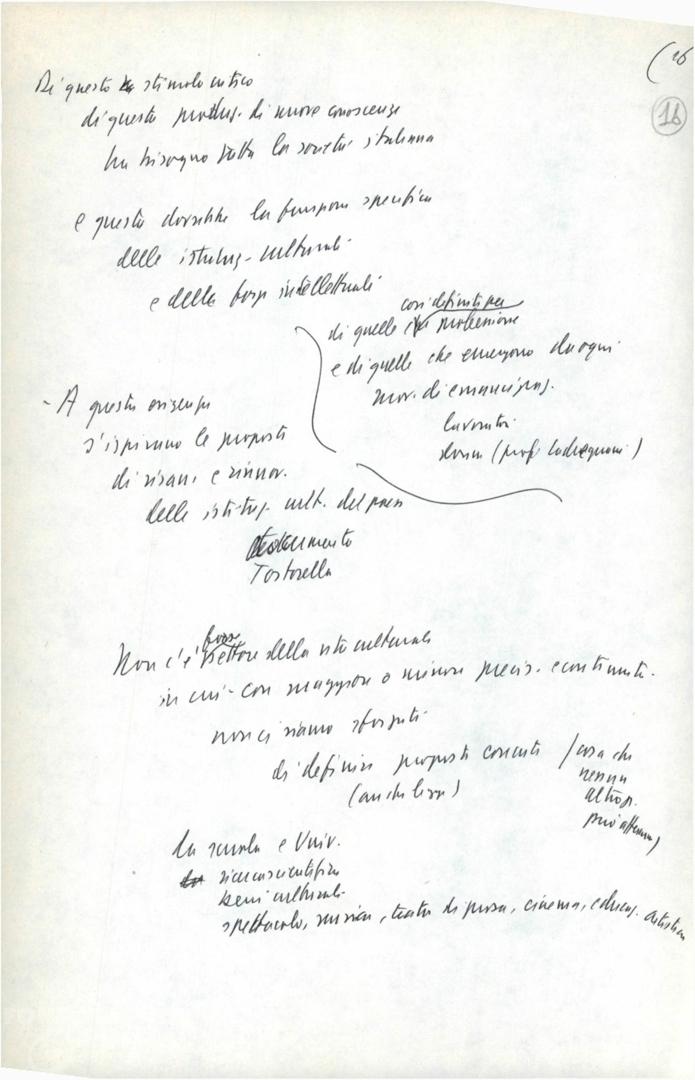 (16
16
Di questo stimolo critico
di questa produz. di nuove conoscenze
ha bisogno tutta la società italiana
e questa dovrebbe la funzione specifica
delle istituz. culturali
e delle forze intellettuali
così definite per
di quelle professione
e di quelle che emergono da ogni
mov. di emancipaz.
lavoratori
donne (prof.
- A questa esigenza
s'ispirano le proposte
di risan. e rinnov.
delle istituz. cult. del paese
documento
Tortorella
forse
Non c'è settore della vita culturale
in cui - con maggiore o minore precis. e continuità -
non ci siamo sforzati
di definire proposte concrete (cosa che
nessun
altro p.
può afferm.)
(anche leggi)
la scuola e Univ.
ricerca scientifica
beni culturali
spettacolo, musica, teatro di prosa, cinema, educaz. artistica